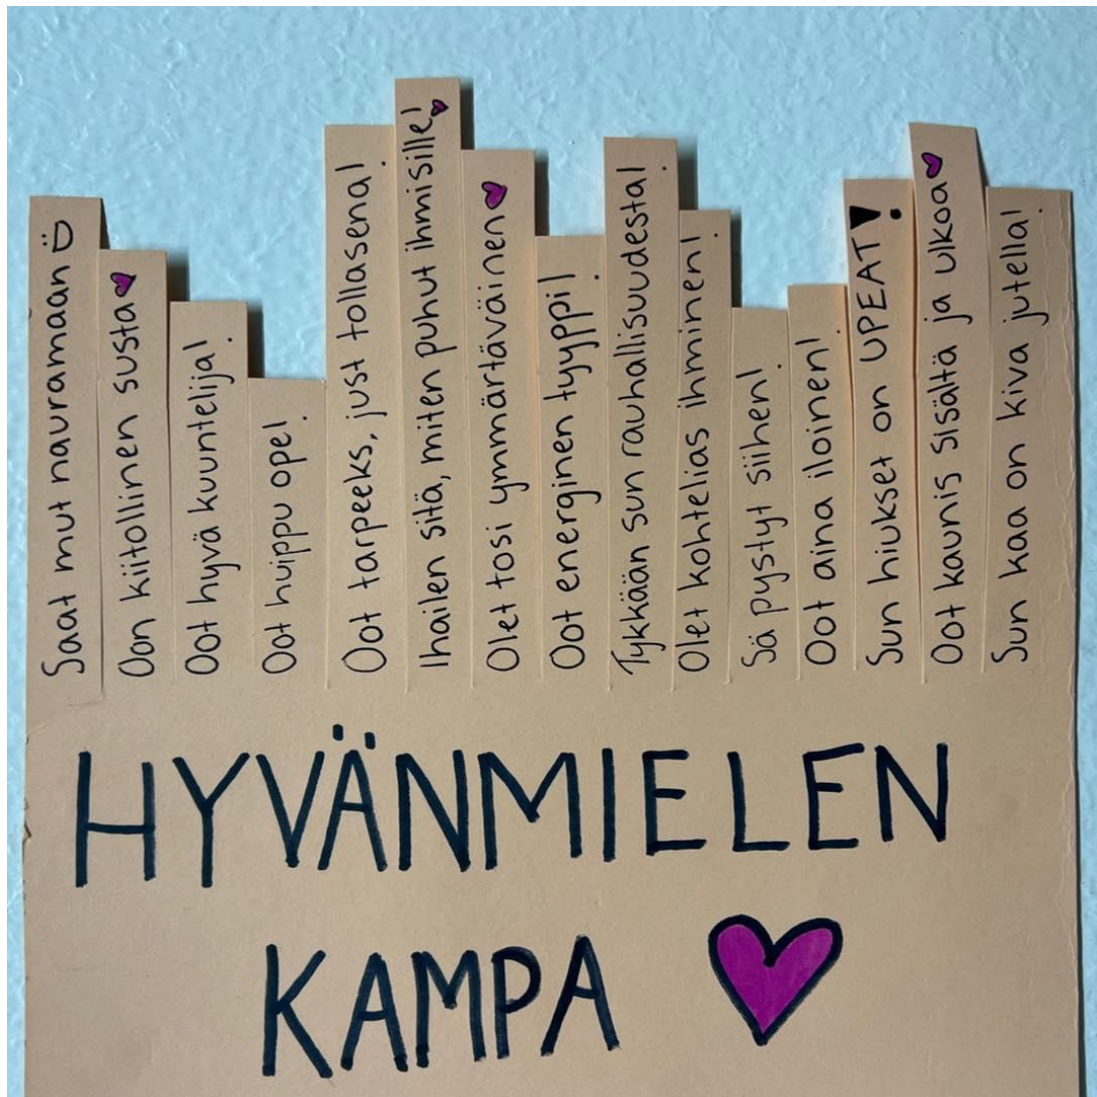 Saat mut nauramaan :D
Oon kiitollinen susta
Oot hyvä kuuntelija!
Oot huippu ope!
Oot tarpeeks, just tollasena!
Ihailen sitä, miten puhut ihmisille!
Olet tosi ymmärtäväinen
Oot energinen tyyppi!
Tykkään sun rauhallisuudesta!
Olet kohtelias ihminen!
Sä pystyt siihen!
Oot aina iloinen!
Sun hiukset on UPEAT!
Oot kaunis sisältä ja ulkoa
Sun kaa on kiva jutella!
HYVÄNMIELEN
KAMPA